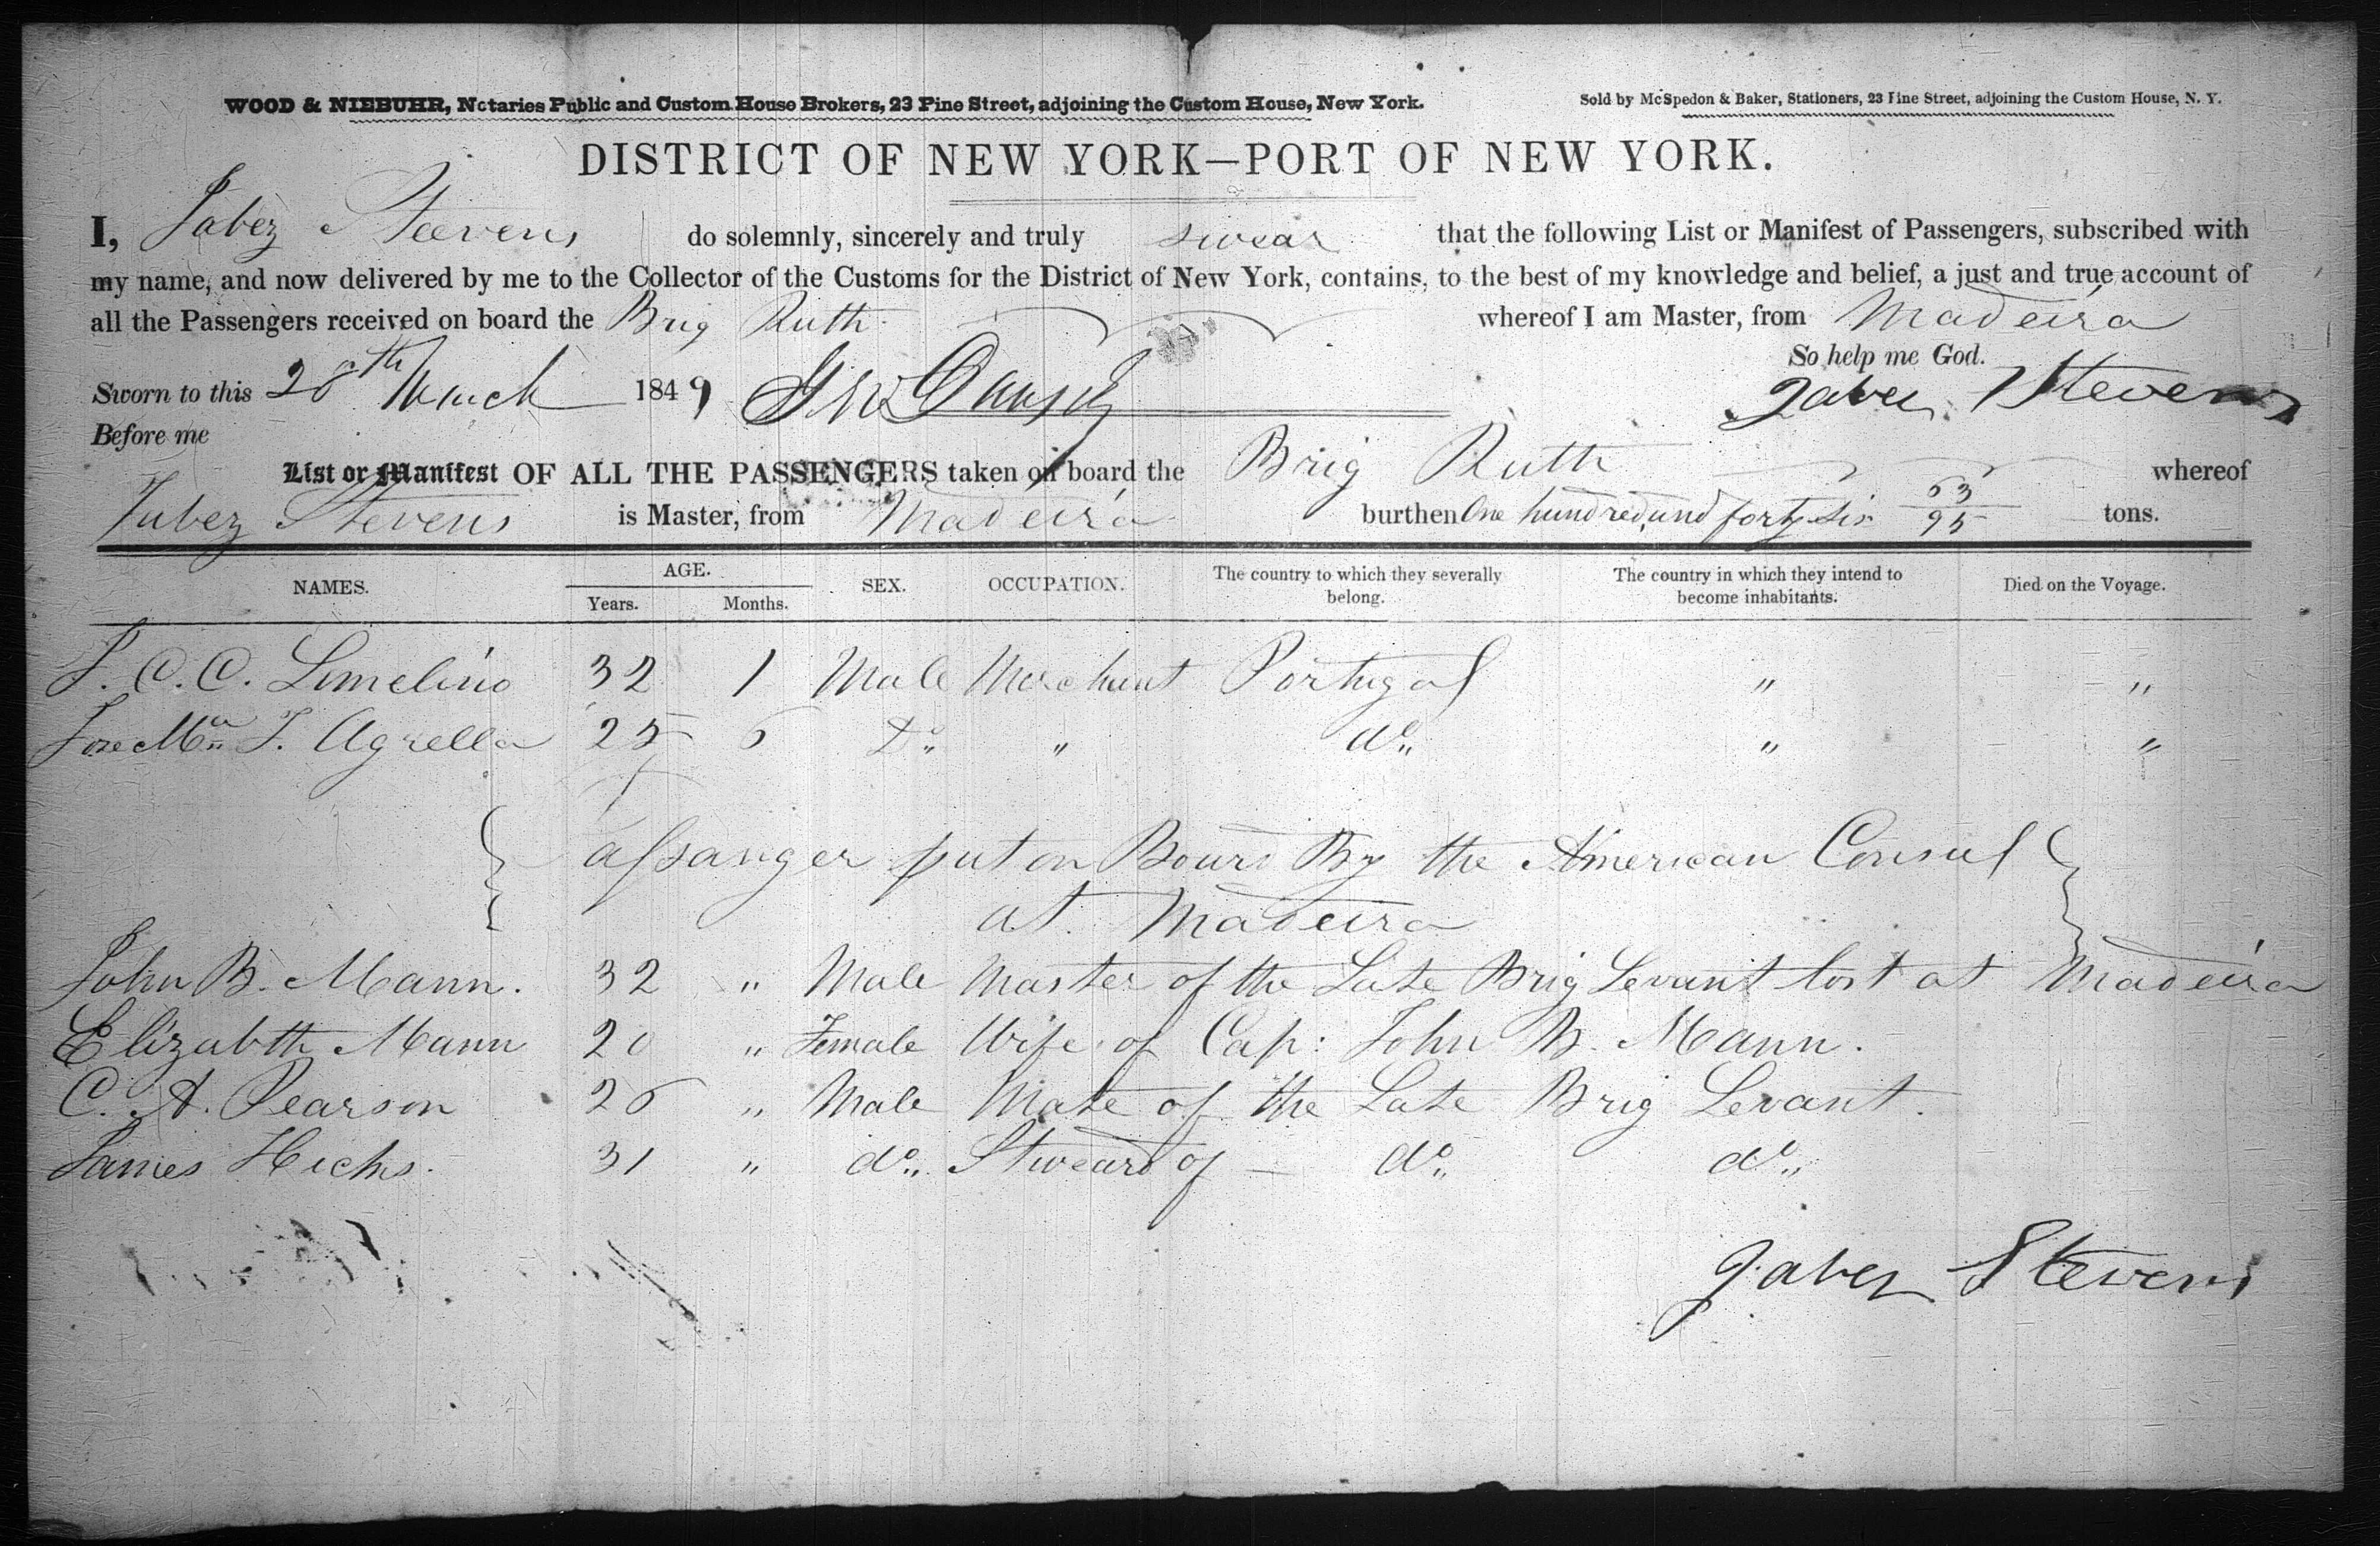 WOOD & NIEBUHR, Notaries Public and Custom House Brokers, 23 Pine Street, adjoining the Custom House, New York.
Sold by McSpedon & Baker, Stationers, 23 Pine Street, adjoining the Custom House, N. Y.
DISTRICT OF NEW YORK—PORT OF NEW YORK.
I, Jabez Stevens do solemnly, sincerely and truly swear that the following List or Manifest of Passengers, subscribed with
my name, and now delivered by me to the Collector of the Customs for the District of New York, contains, to the best of my knowledge and belief, a just and true account of
all the Passengers received on board the Brig Ruth whereof I am Master, from Madeira
So help me God.
Sworn to this 28th March 1849 Jabez Stevens
Before me
List or Manifest OF ALL THE PASSENGERS taken on board the Brig Ruth whereof
Jabez Stevens is Master, from Madeira burthen One hundred and forty six 63/95 tons.
NAMES. AGE. SEX. OCCUPATION. The country to which they severally belong. The country in which they intend to become inhabitants. Died on the Voyage.
Years. Months.
J. C. C. Lomelino 32 1 Male Merchant Portugal " "
Jose Ma. T. Agrella 25 6 Do " do " "
Passanger put on Bourd By the American Consul
at Madeira
John B. Mann. 32 " Male Master of the Late Brig Levant lost at Madeira
Elizabth Mann 20 " Female Wife of Cap: John B. Mann.
C. A. Pearson 26 " Male Mate of the Late Brig Levant.
James Hichs. 31 " do Stweard of — do do
Jabez Stevens